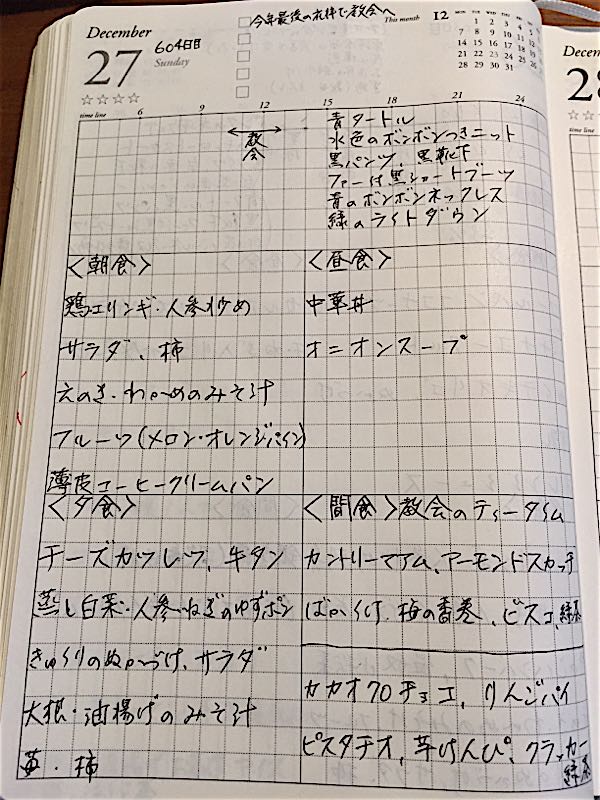 今年最後の礼拝で教会へ
This month 12
MON TUE WED THU FRI SAT SUN
1 2 3 4 5 6
7 8 9 10 11 12 13
14 15 16 17 18 19 20
21 22 23 24 25 26 27
28 29 30 31
December
27 604日目
Sunday
☆☆☆☆
time line 6 9 12 15 18 21 24
教会
青タートル
水色のボンボンつきニット
黒パンツ、黒靴下
ファー付黒ショートブーツ
青のボンボンネックレス
緑のライトダウン
<朝食>
鶏エリンギ・人参炒め
サラダ、柿
えのき・わかめのみそ汁
フルーツ(メロン・オレンジパイン)
薄皮コーヒークリームパン
<昼食>
中華丼
オニオンスープ
<夕食>
チーズカツレツ、牛タン
蒸し白菜・人参・ねぎのゆずポン
きゅうりのぬかづけ、サラダ
大根・油揚げのみそ汁
・柿
<間食>教会のティータイム
カントリーマアム、アーモンドスカッチ
ばかうけ、梅の香巻、ビスコ、緑茶
カカオ70チョコ、りんごパイ
ピスタチオ、芋けんぴ、クラッカー
緑茶
Decem
28
time